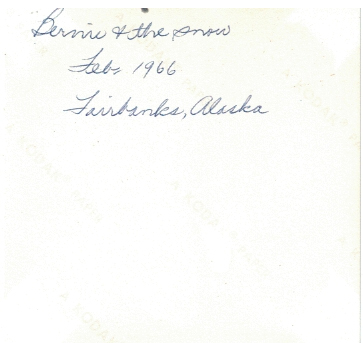 Bernie & the snow
Feb, 1966
Fairbanks, Alaska
A KODAK PAPER
A KODAK PAPER
A KODAK